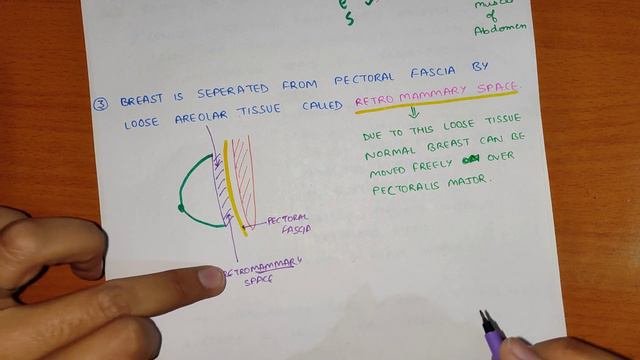 muscle
of
Abdomen
③ BREAST IS SEPERATED FROM PECTORAL FASCIA BY
LOOSE AREOLAR TISSUE CALLED RETROMAMMARY SPACE.
DUE TO THIS LOOSE TISSUE
NORMAL BREAST CAN BE
MOVED FREELY OVER
PECTORALIS MAJOR.
PECTORAL
FASCIA
RETROMAMMARY
SPACE